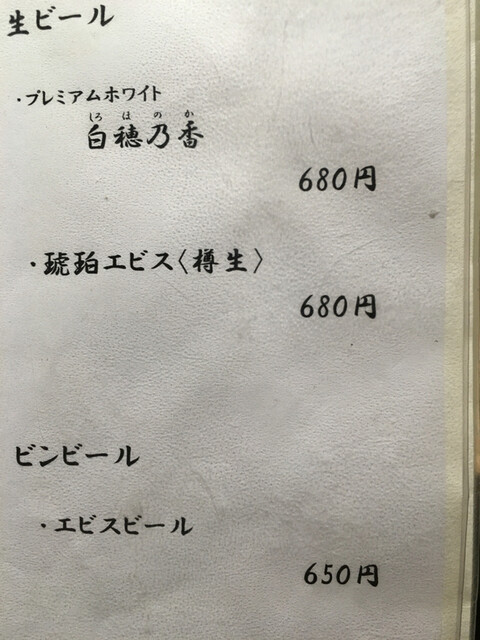 生ビール
・プレミアムホワイト
しろほのか
白穂乃香
680円
・琥珀エビス〈樽生〉
680円
ビンビール
・エビスビール
650円